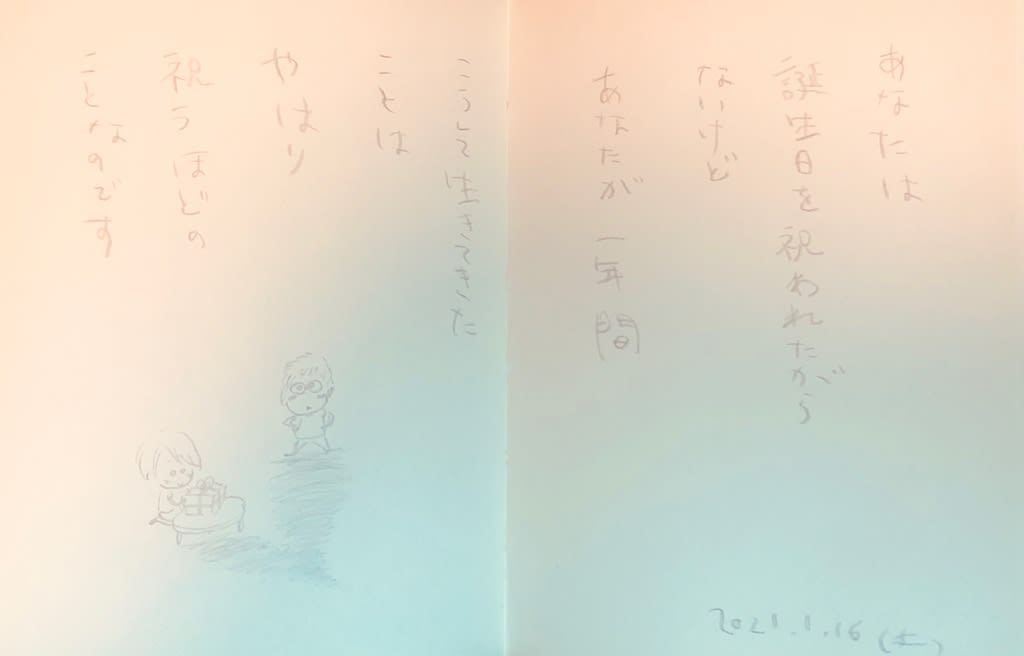 あなたは
誕生日を祝われたがら
ないけど
あなたが一年間
こうして生きてきた
ことは
やはり
祝うほどの
ことなのです
2021.1.16(土)